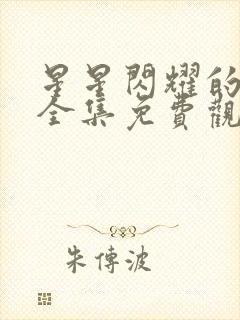 星星閃耀的
全集免費觀
朱傳波